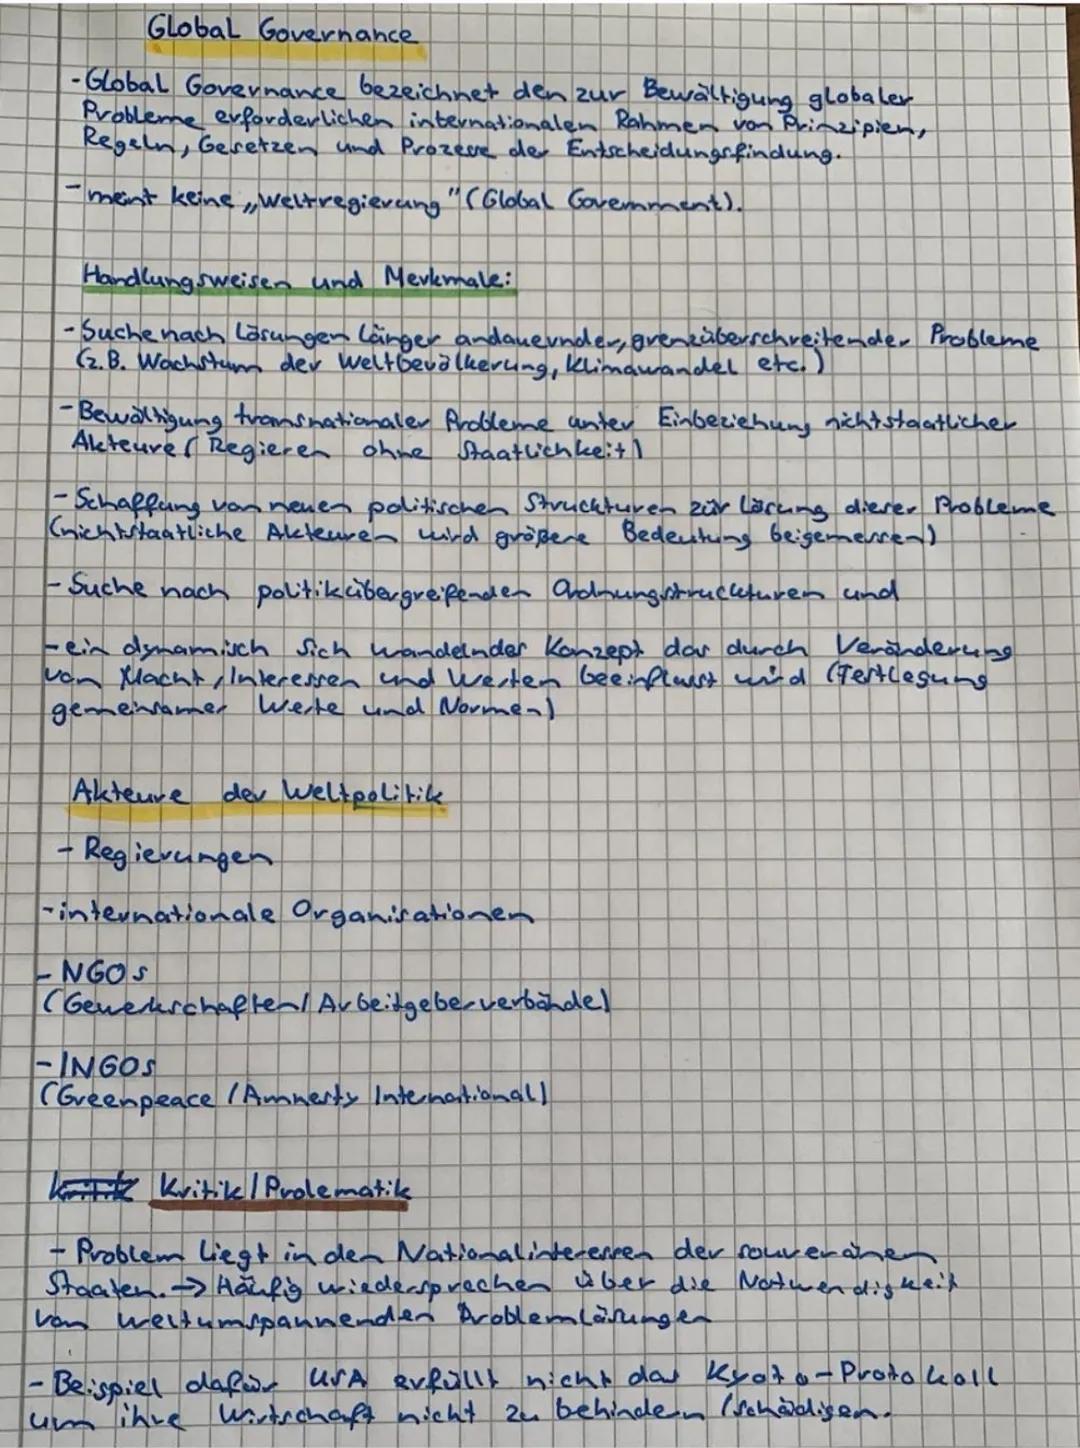 Global Governance
- Global Governance bezeichnet den zur Bewältigung globaler
Probleme erforderlichen internationalen Rahmen von Prinzipien,
Regeln, Gesetzen und Prozesse der Entscheidungsfindung.
- meint keine „Weltregierung" (Global Government).
Handlungsweisen und Merkmale:
- Suche nach Lösungen länger andauernder, grenzüberschreitender Probleme
(z.B. Wachstum der Weltbevölkerung, Klimawandel etc.)
- Bewältigung transnationaler Probleme unter Einbeziehung nichtstaatlicher
Akteure (Regieren ohne Staatlichkeit)
- Schaffung von neuen politischen Struckturen zür Lösung dieser Probleme
(nichtstaatliche Akteuren wird größere Bedeutung beigemessen)
- Suche nach politikübergreifenden Ordnungsstruckturen und
- ein dynamisch sich wandelnder Konzept das durch Veränderung
von Macht, Interessen und Werten beeinflusst wird (Festlegung
gemeinsamer Werte und Normen)
Akteure der Weltpolitik
- Regierungen
- internationale Organisationen
- NGOs
(Gewerkschaften/ Arbeitgeberverbände)
- INGOs
(Greenpeace / Amnesty International)
Kritik Kritik / Prolematik
- Problem liegt in den Nationalinteressen der souveränen
Staaten. → Häufig wiedersprechen über die Notwendigkeit
von weltumspannenden Problemlösungen
- Beispiel dafür USA erfüllt nicht das Kyoto-Protokoll
um ihre Wirtschaft nicht zu behindern /schädigen.